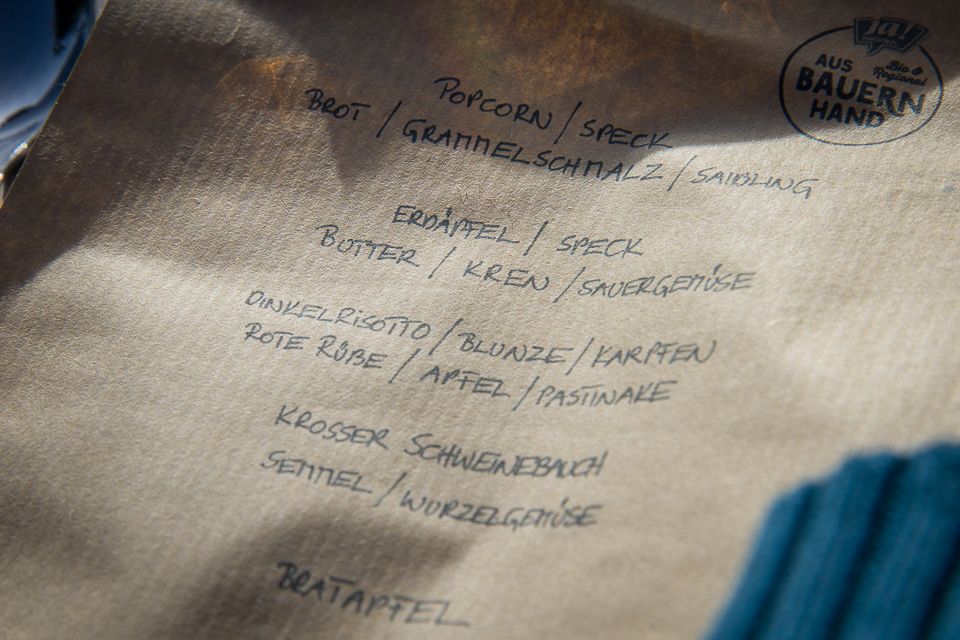 Ja!
AUS
Bio &
Regional
BAUERN
HAND
POPCORN / SPECK
BROT / GRAMMELSCHMALZ / SAIBLING
ERDÄPFEL / SPECK
BUTTER / KREN / SAUERGEMÜSE
DINKELRISOTTO / BLUNZE / KARPFEN
ROTE RÜBE / APFEL / PASTINAKE
KROSSER SCHWEINEBAUCH
SEMMEL / WURZELGEMÜSE
BRATAPFEL